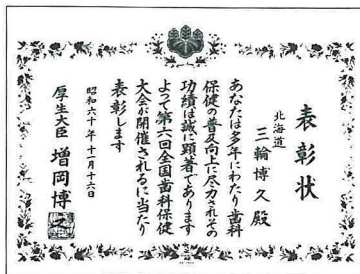 表彰状
北海道
三輪博久殿
あなたは多年にわたり歯科
保健の普及向上に尽力されその
功績は誠に顕著であります
よって第六回全国歯科保健
大会が開催されるに当たり
表彰します
昭和六十年十一月十六日
厚生大臣 増岡博之